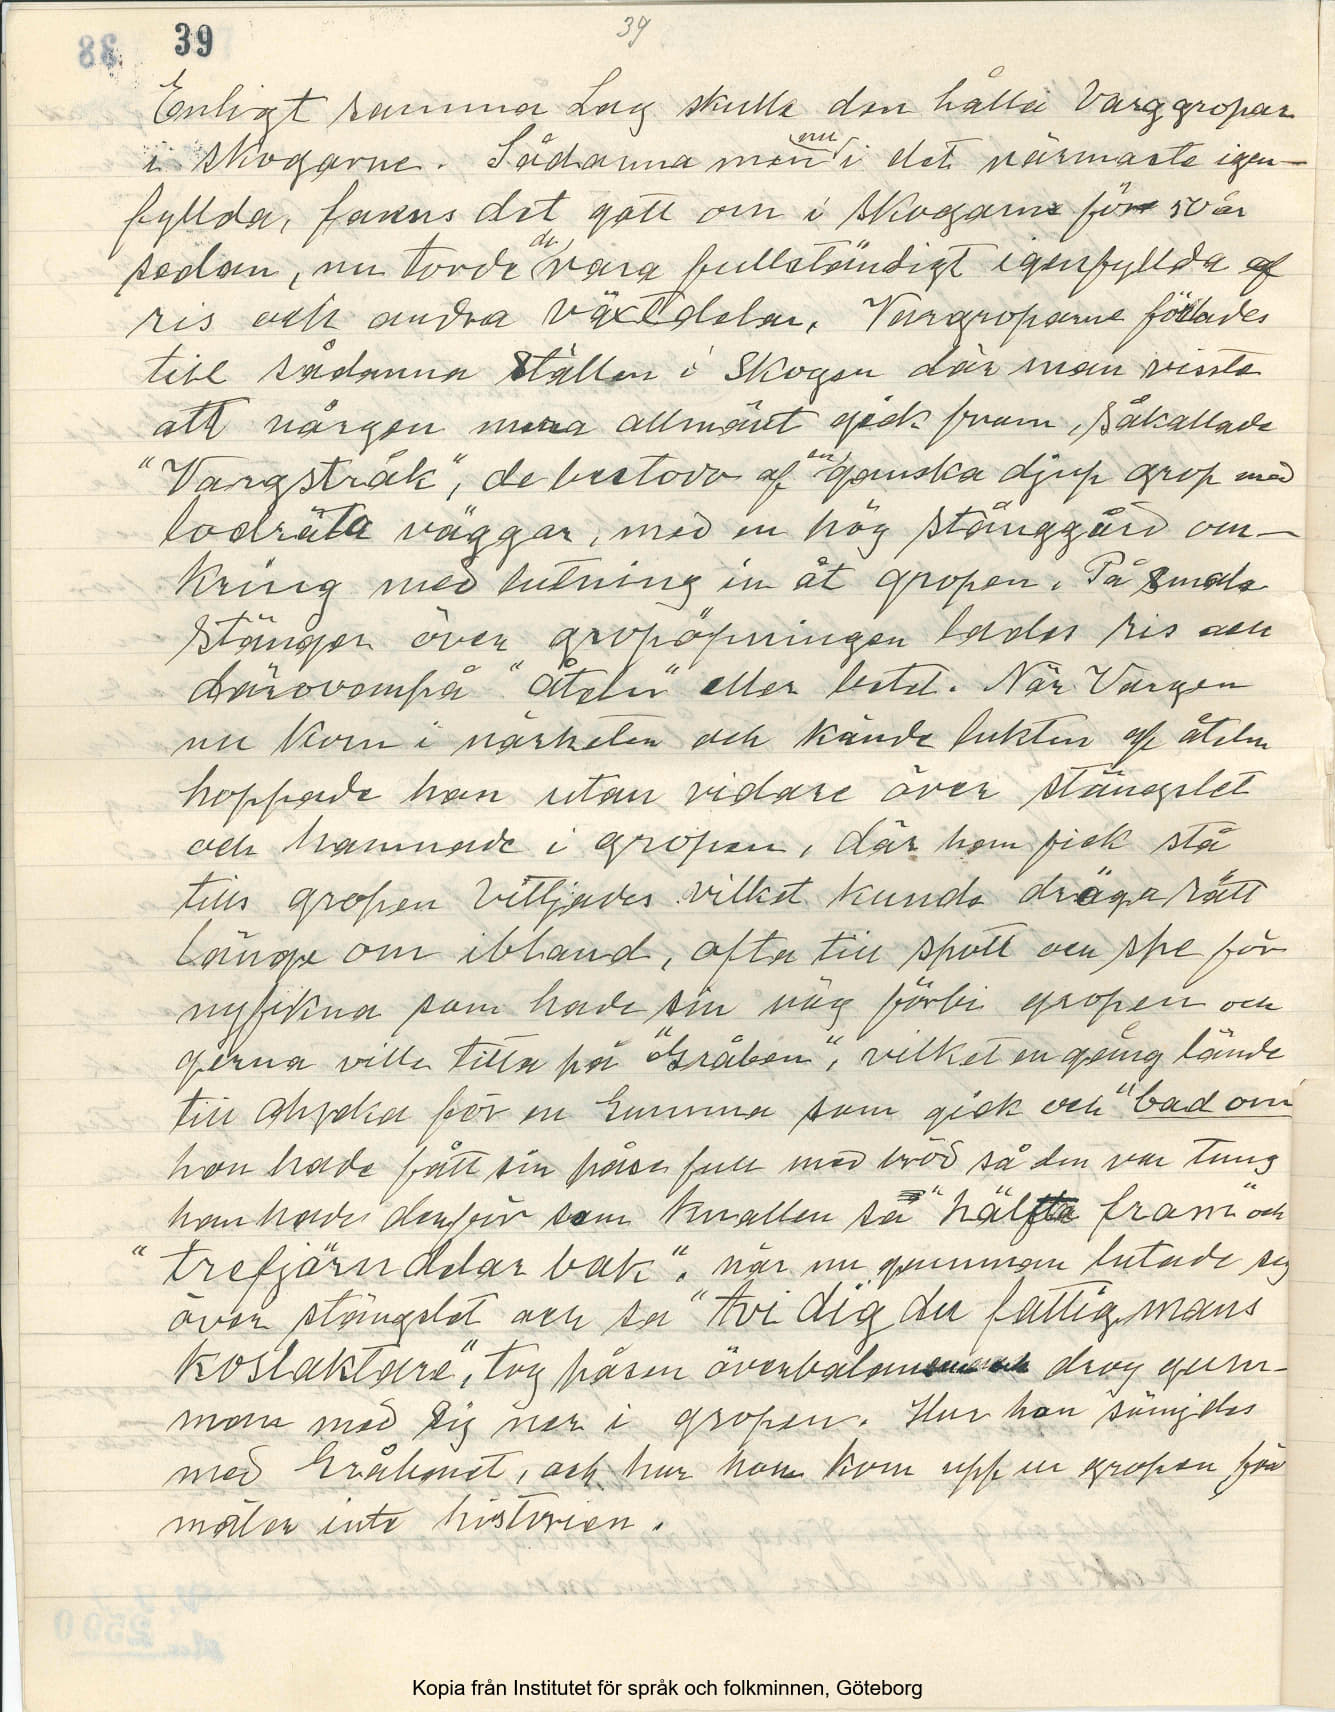 39
39
Enligt samma Lag skulle den hålla Varggropar
i skogarne. Sådanna men nu i det närmaste igen-
fyllda, fanns det gott om i skogarne för 50 år
sedan, nu torde de vara fullständigt igenfyllda af
ris och andra växtdelar. Vargroparne förlades
till sådanna ställen i Skogen där man visste
att vargen mera allmänt gick fram, såkallade
"Vargstråk", de bestodo af en ganska djup grop med
lodräta väggar, med en hög stänggård om-
kring med lutning in åt gropen. På smala
stänger över gropöpningen lades ris och
därovompå "åteln" eller betet. När Vargen
nu kom i närheten och kände lukten af åteln
hoppade han utan vidare över stängslet
och hamnade i gropen, där han fick stå
tills gropen vittjades vilket kunde dräga rätt
länge om ibland, ofta till spott och spe för
nyfikna som hade sin väg förbi gropen och
gerna ville titta på "Gråben", vilket en gång lände
till olycka för en Gumma som gick och "bad om
hon hade fått sin påse full med bröd så den var tung
hon hade den för som knallen sa "hälfta fram" och
"trefjärndelar bak". när nu gumman lutade sig
över stängslet och sa "tvi dig du fattig mans
koslaktare", tog påsen överbalansen och drog gum-
man med sig ner i gropen. Hur hon sämjdes
med Gråbenet, och hur hon kom upp ur gropen för
mäler inte historien.
Kopia från Institutet för språk och folkminnen, Göteborg